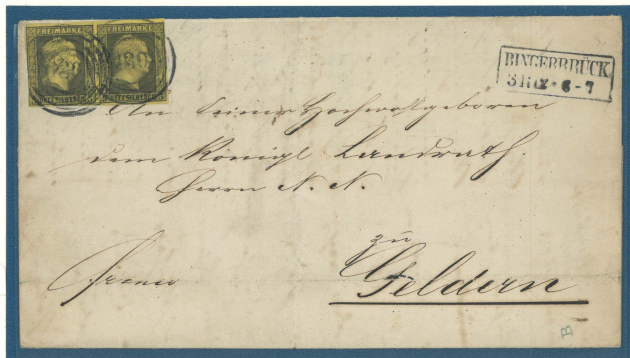 FREIMARKE FREIMARKE
180
BINGERBRÜCK
31 12 6-7
An Seiner Hochwohlgeboren
dem Königl Landrath.
Herrn N. N.
zu
Geldern
franco
B